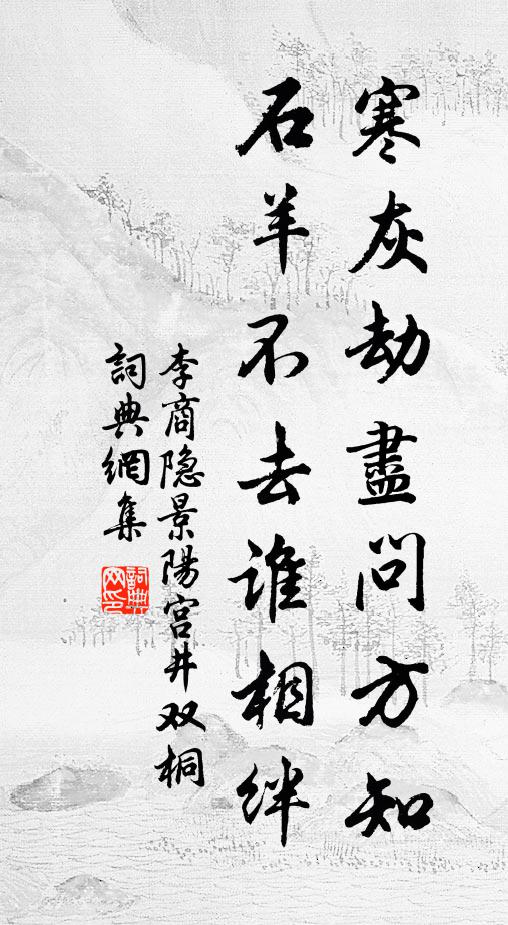 寒灰劫盡問方知
石羊不去誰相絆
李商隐景陽宮井双桐
詞典網集
詞典網印